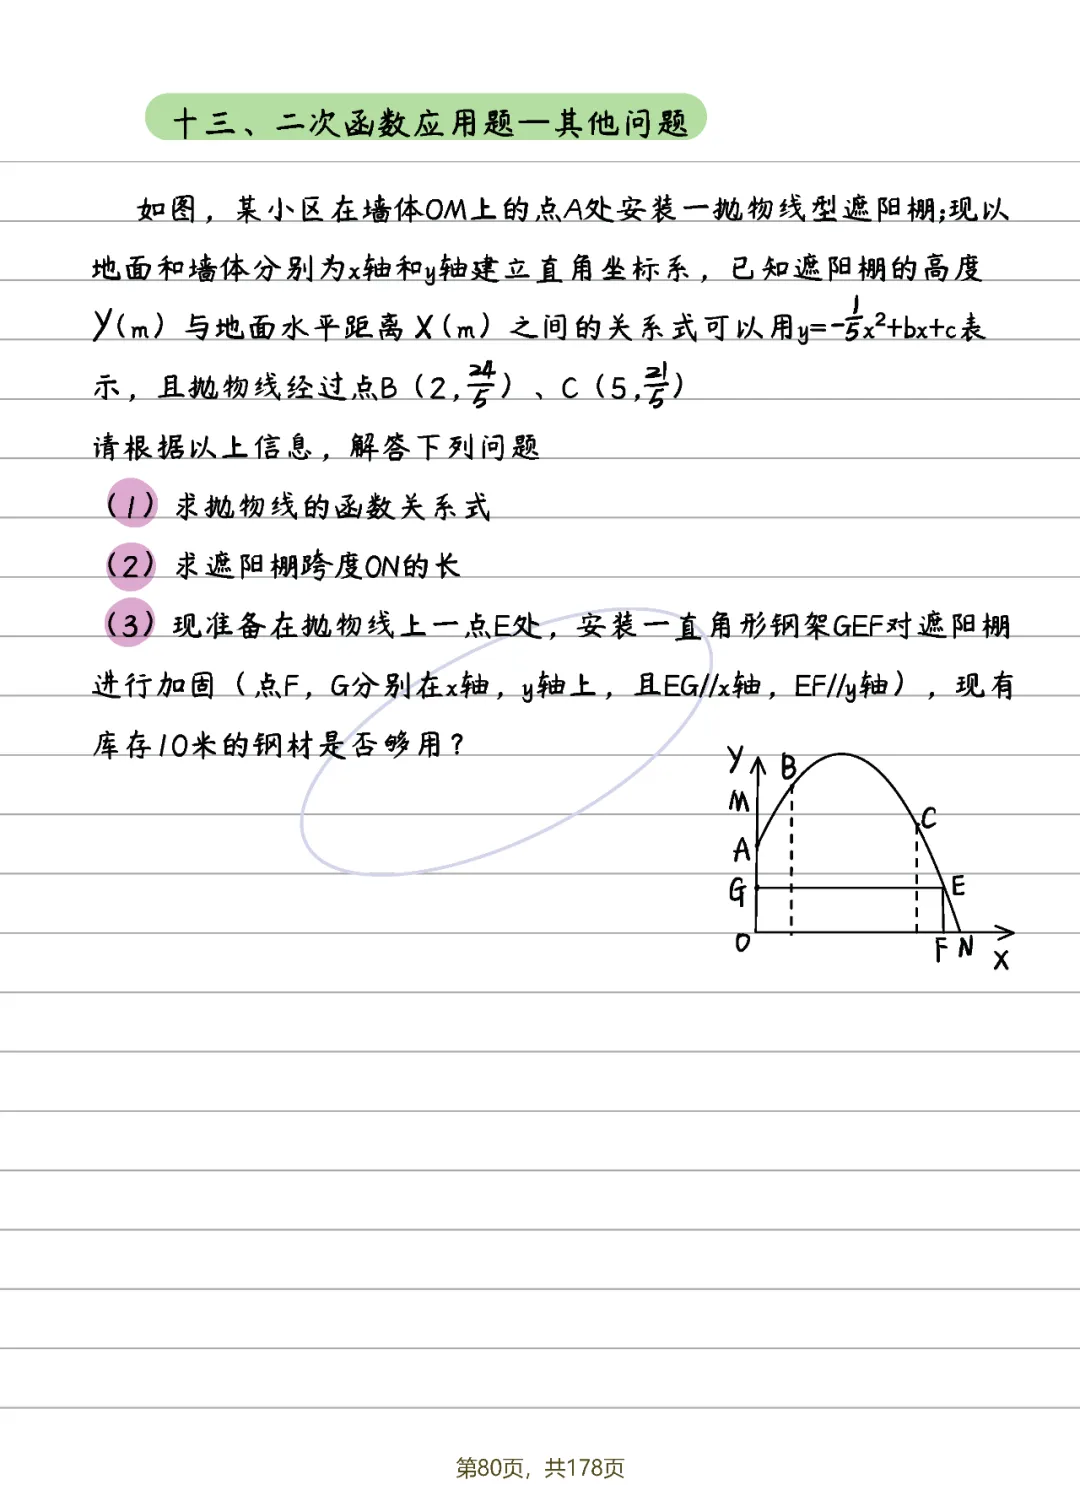 十三、二次函数应用题—其他问题
如图，某小区在墙体OM上的点A处安装一抛物线型遮阳棚;现以
地面和墙体分别为x轴和y轴建立直角坐标系，已知遮阳棚的高度
Y(m）与地面水平距离X(m）之间的关系式可以用y=-1/5x²+bx+c表
示，且抛物线经过点B（2,24/5）、C（5,21/5）
请根据以上信息，解答下列问题
（1）求抛物线的函数关系式
（2）求遮阳棚跨度ON的长
（3）现准备在抛物线上一点E处，安装一直角形钢架GEF对遮阳棚
进行加固（点F，G分别在x轴，y轴上，且EG//x轴，EF//y轴），现有
库存10米的钢材是否够用？
Y
B
M
C
A
G
E
O
F
N
X
第80页，共178页